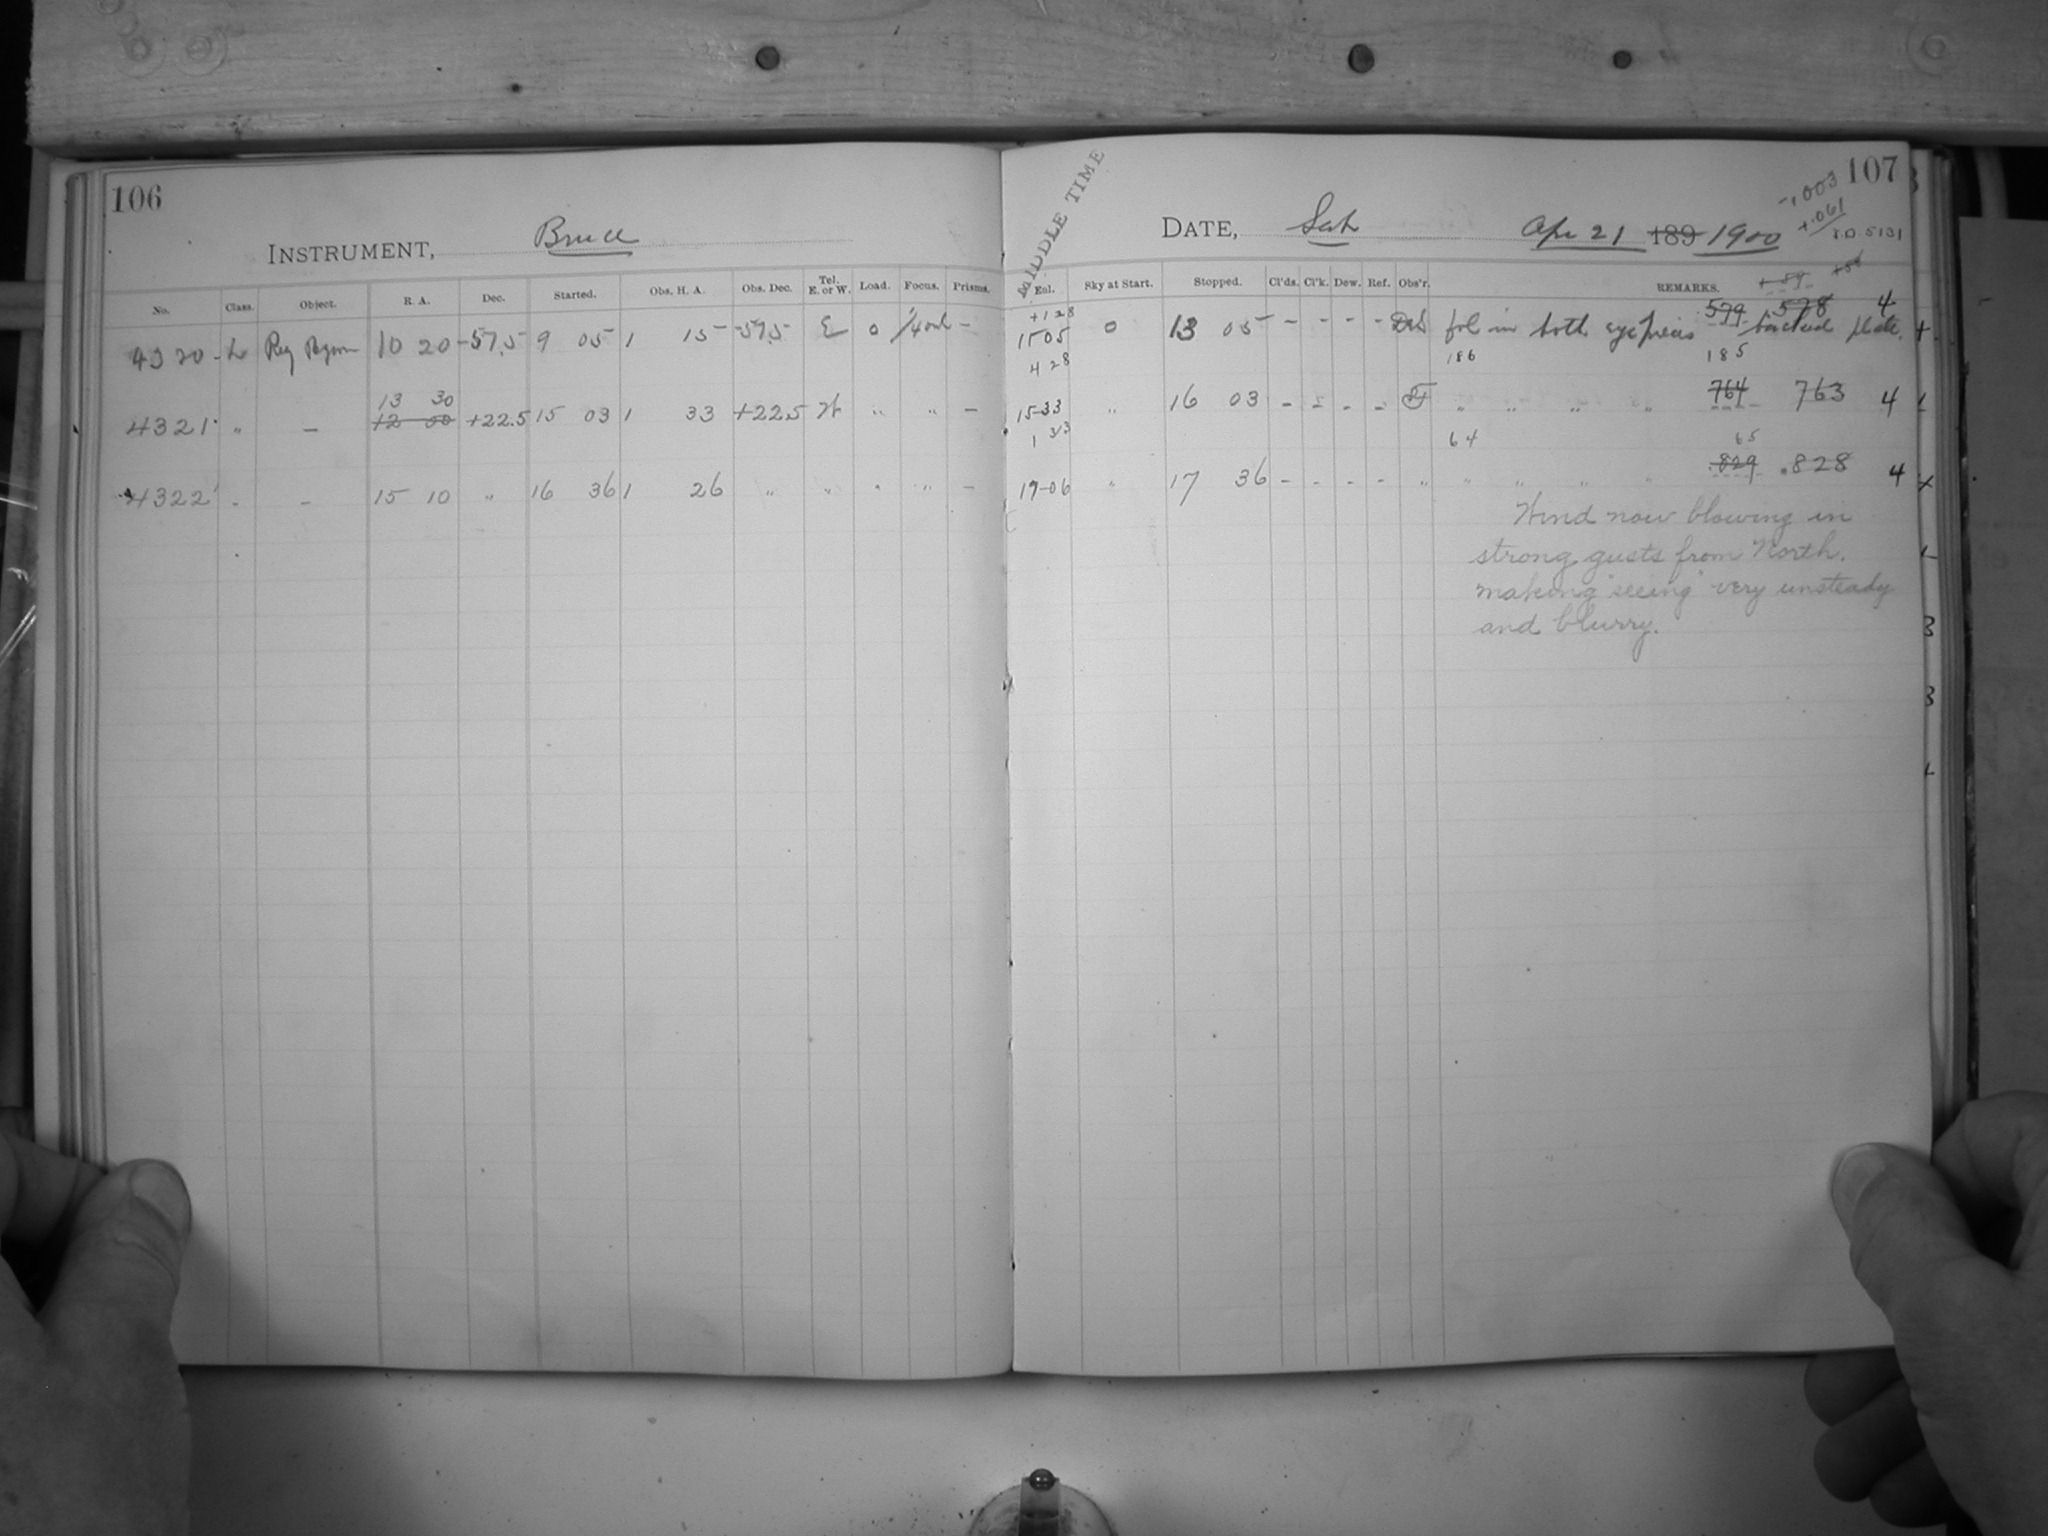 106
INSTRUMENT, Bruce
No. Class. Object. R. A. Dec. Started. Obs. H. A. Obs. Dec. Tel. E. or W. Load. Focus. Prisms.
4320 L Reg 10 20 -57.5 9 05 1 15 -57.5 E 0 –
13 30
4321 " – 12 50 +22.5 15 03 1 33 +22.5 W " " –
4322 " – 15 10 " 16 36 1 26 " " " " –
107
MIDDLE TIME
DATE, Sat Apr 21 189 1900
-.003
+.061
J.D. 5131
+59 +58
Eal. Sky at Start. Stopped. Cl'ds. Cl'k. Dew. Ref. Obs'r. REMARKS.
+128 579 578 4
11 05 0 13 05 – – – – fol in both eyepieces backed plate.
4 28 186 185
15-33 " 16 03 – – – – " " " " 764 763 4
1 33 64 65
17-06 " 17 36 – – – – " " " " " .829 .828 4
Wind now blowing in
strong gusts from North.
making "seeing" very unsteady
and blurry.